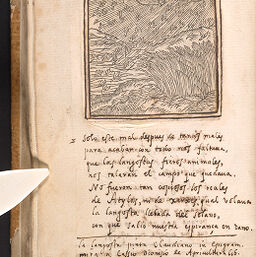 Solo este mal despues de tantos males
para acabar con todo nos faltava,
que las langostas fieros animales,
nos talaran el campo que quedava.
No fueran tan copiosos los reales
de ni de qual volava
la langosta llevada del Solano,
con que salio nuestra esperança en vano.
la langosta pinta Claudiano in epigram.